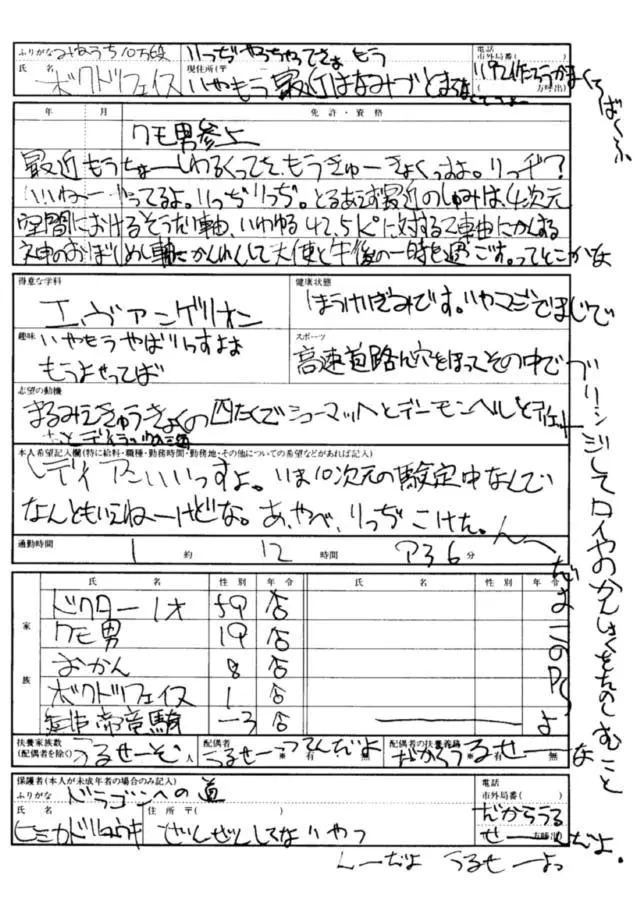 ふりがな みねうち10万段
りっぢやっちゃってさぁ もう
電話
市外局番（ ）
氏 名 ボクドフェイス
現住所(〒
いやもう最近はなみづとまらなくてさー
（ 方呼出）
年 月 免許・資格
クモ男参上
最近もうちょーしわるくってさ、もうきゅーきょくっすよ。りっヂ？
いいねー やってるよ。りっぢりっぢ。とるあえず最近のしゅみは4次元
空間におけるそうたい軸、いわゆる42.5Kºに対するZ軸にかんする
ネ申のおぼしめし軸にかんれんして天使と午後の一時を過ごす。ってとこかな
得意な学科
エヴァンゲリオン
健康状態
ほうけいぎみです。いやマジでまじで
趣味 いやもうやばいっすよぉ
もうよせってば
スポーツ
高速道路に穴をほってその中で
ブリッジしてロイヤのかんしょくをたのしむこと
志望の動機
まるみえきゅうきょくの四たくでシューマッハとデーモンヘルとディナー
本人希望記入欄(特に給料・職種・勤務時間・勤務地・その他についての希望などがあれば記入)
レディアンいいっすよ。いま10次元の験定中なんでい
なんともいえねーけどな。あ、やべ、りっぢこけた。
通勤時間 1 約 12 時間 ア36 分
家族
氏 名 性別 年令 氏 名 性別 年令
ドクター1才 59 店
クモ男 19 店
おかん 8 店
ボクドフェイス 1 店
海帝竜騎 －3 店
だよこのPC
よ
扶養家族数
(配偶者を除く) うるせーぞ 人
配偶者 うるせーつうんだよ ※ 有 無
配偶者の扶養義務 だからうるせーな ※ 有 無
保護者(本人が未成年者の場合のみ記入)
ふりがな ドラゴンへの道
電話
市外局番（ ）
氏 名 ヒミカドリュウキ
住所 〒（ ）
ぜんぜんしてないやつ
だからうる
せーんだよ。
方呼出
んーだよ うるせーよっ